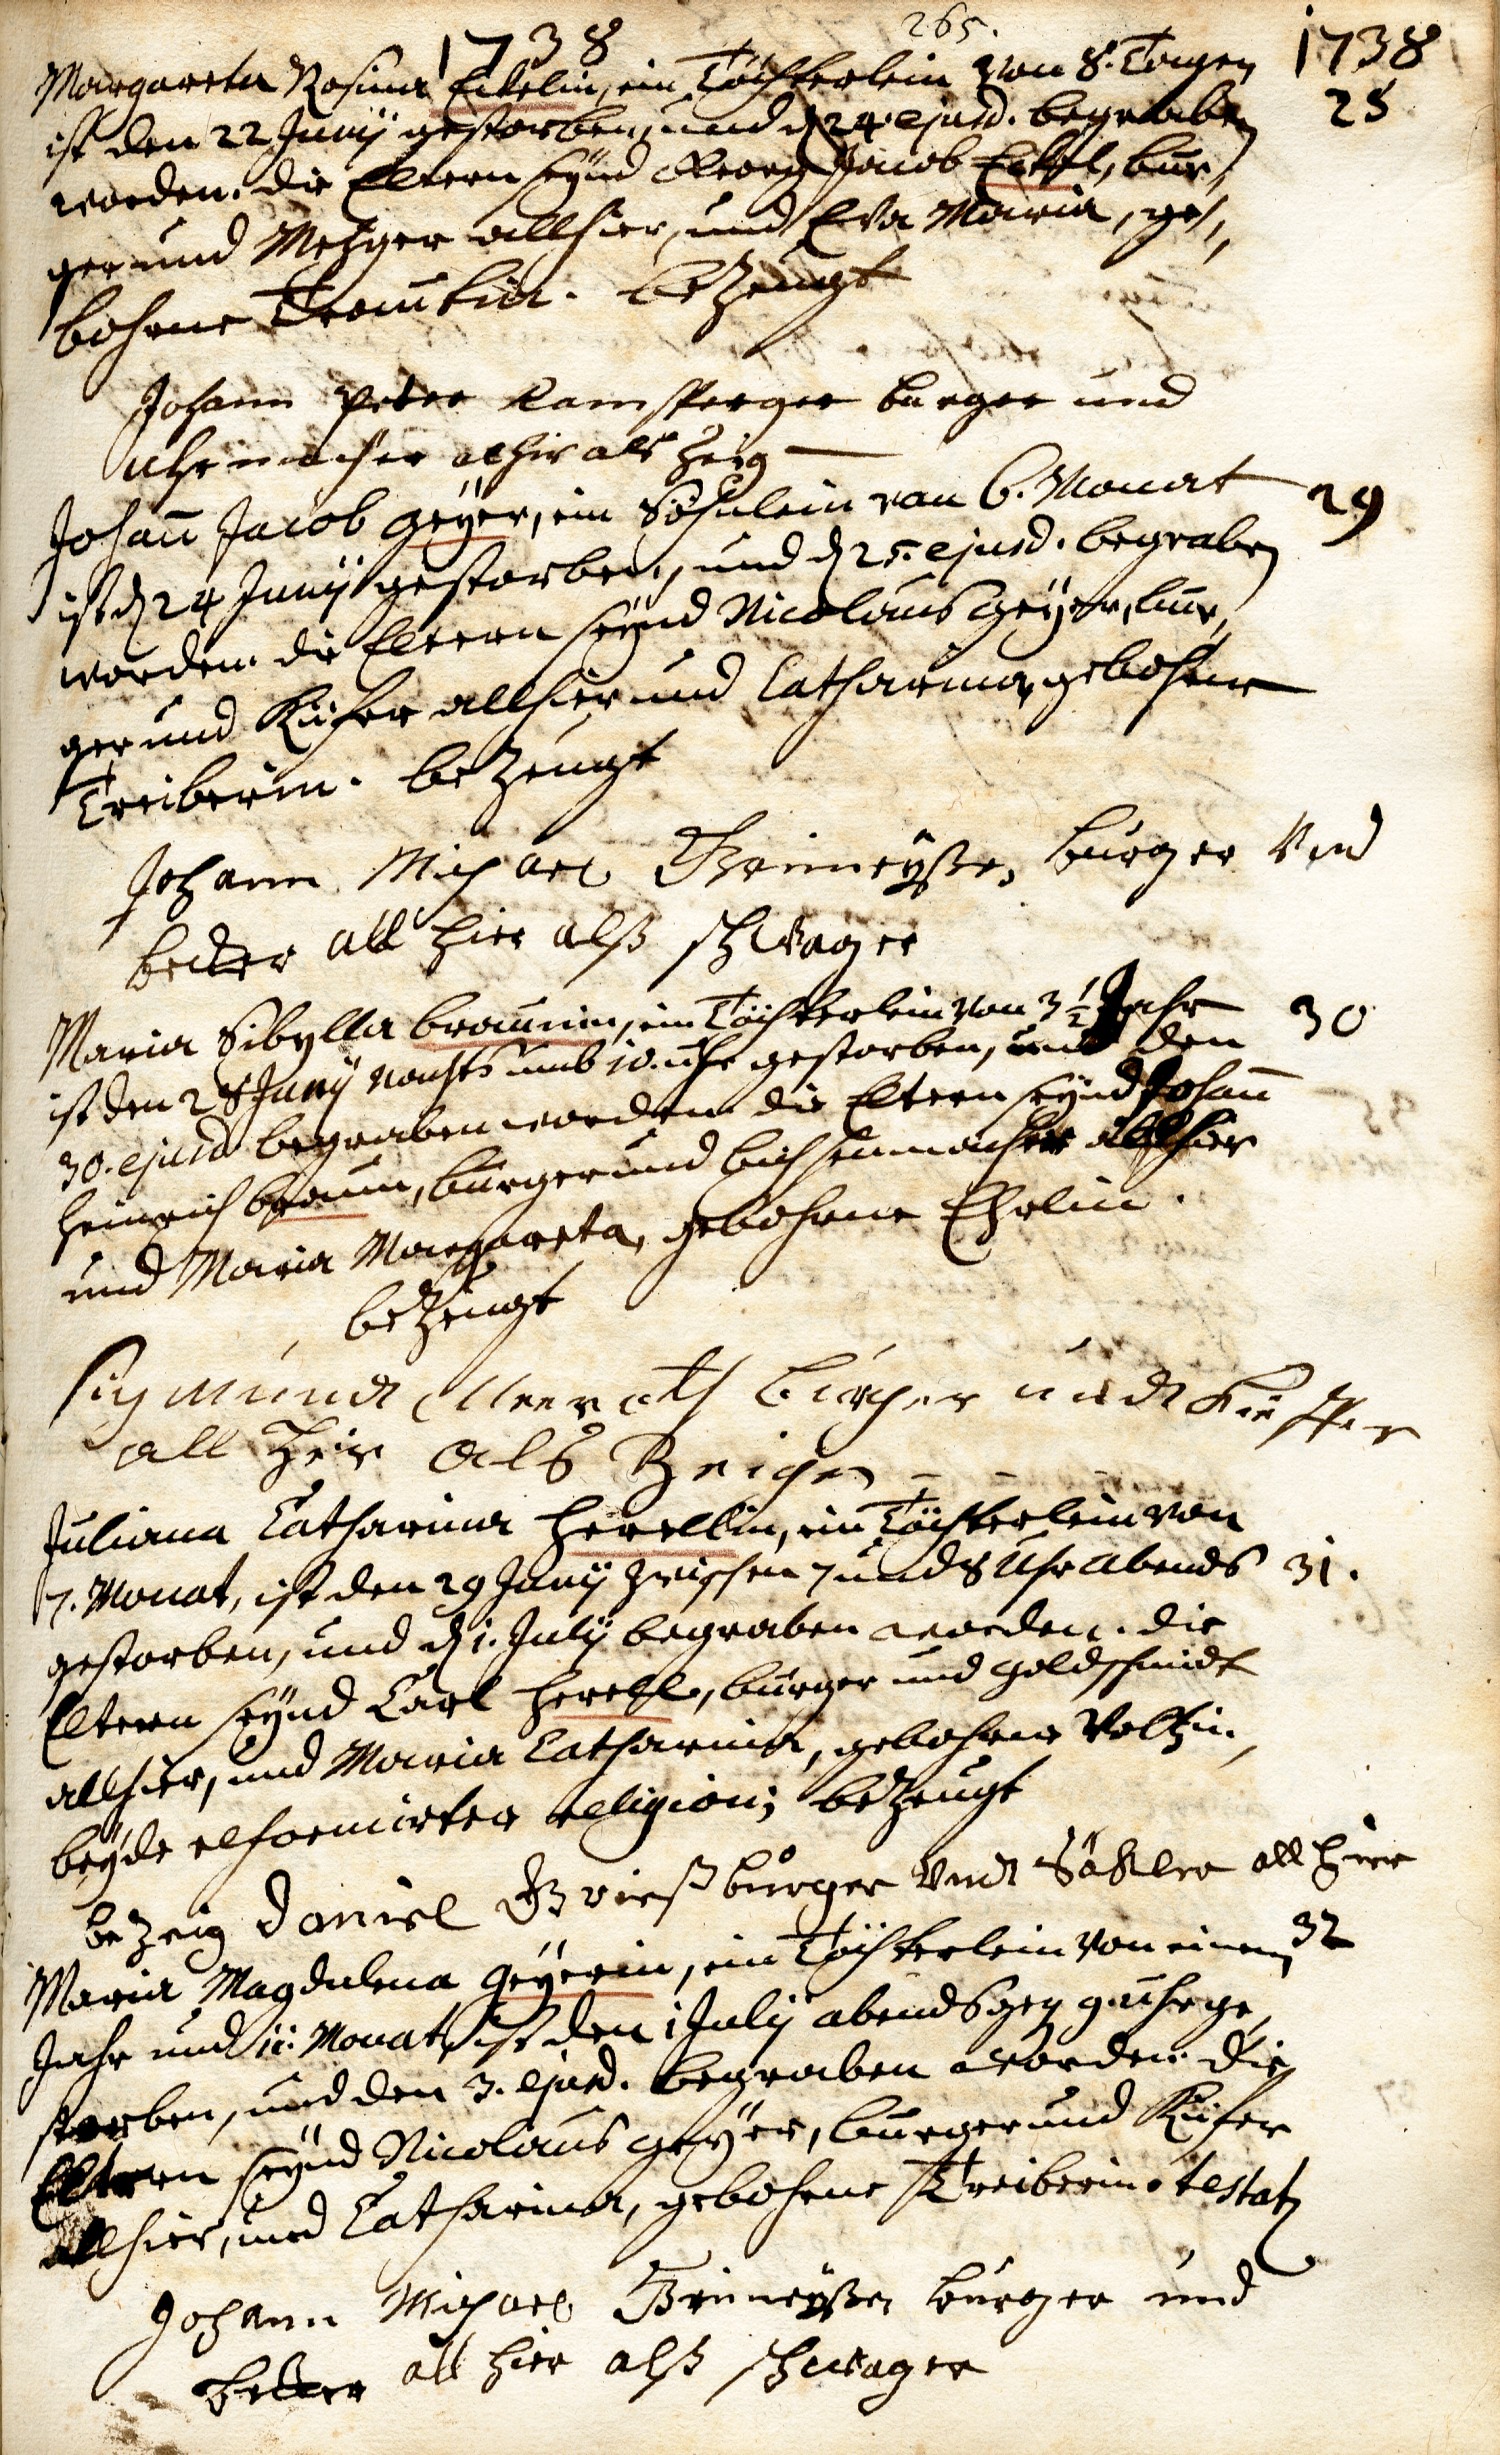 265.
1738 1738
Margareta Rosina Eckelin, ein Töchterlein von 8. Tagen 28
ist den 22 Junij gestorben, und d 24. ejusd. begraben
worden. die Eltern seÿnd Georg Jacob Eckel, bur,
ger und Metzger allhier, und Eva Maria, ge,,
bohrne. bezeugt
Johann Peter Ramsperger burger und
uhrmacher alhir als zeig
Johañ Jacob Geÿer, ein Söhnlein von 6. Monat 29
ist d 24 Junij gestorben, und d 25. ejusd. begraben
worden. die Eltern seÿnd Nicolaus Geÿer, bur,
ger und Küfer allhier, und Catharina, gebohrne
Treiberin. bezeugt
Johann Michael burger Vnd
becker all hier alß schwager
Maria Sibylla Braunin, ein Töchterlein von 3 ½ Jahr 30
ist den 28 Junij nachts umb 10. uhr gestorben, und den
30. ejusd begraben worden. die Eltern seÿnd Johañ
Heinrich Braun, burger und büchsenmacher allhier
und Maria Margareta, gebohrne Ehrlin.
bezeugt
sigmund burger undt Kieffer
all hir als Zeigen
Juliana Catharina Herellin, ein Töchterlein von
7. Monat, ist den 29 Junij zwischen 7 und 8 Uhr abends 31.
gestorben, und d 1. Julij begraben worden. die
Eltern seÿnd Carl Herell, burger und goldschmidt
allhier, und Maria Catharina, gebohrne Voltzin,
beÿde reformirter religion; bezeugt
bezeig Daniel burger Vndt Säkler all hier
Maria Magdalena Geÿerin, ein Töchterlein von einem 32
Jahr und 11. Monat, ist den 1 Julij abends geg 9. uhr ge,
storben, und den 3. ejusd. begraben worden. die
Eltern seÿnd Nicolaus Geÿer, burger und Küfer
allhier, und Catharina, gebohrne Treiberin. testat
Johann Michael burger und
becker all hier alß schwager